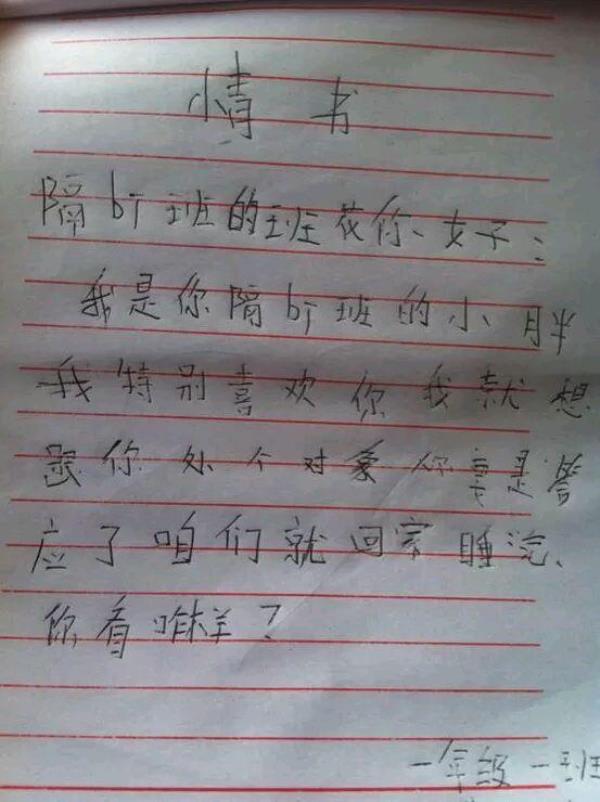 情书
隔bì班的班花你、女子:
我是你隔bì班的小胖
我特别喜欢你我就想
跟你处个对象你要是答
应了咱们就回家睡
你看咋样?
一年级一班